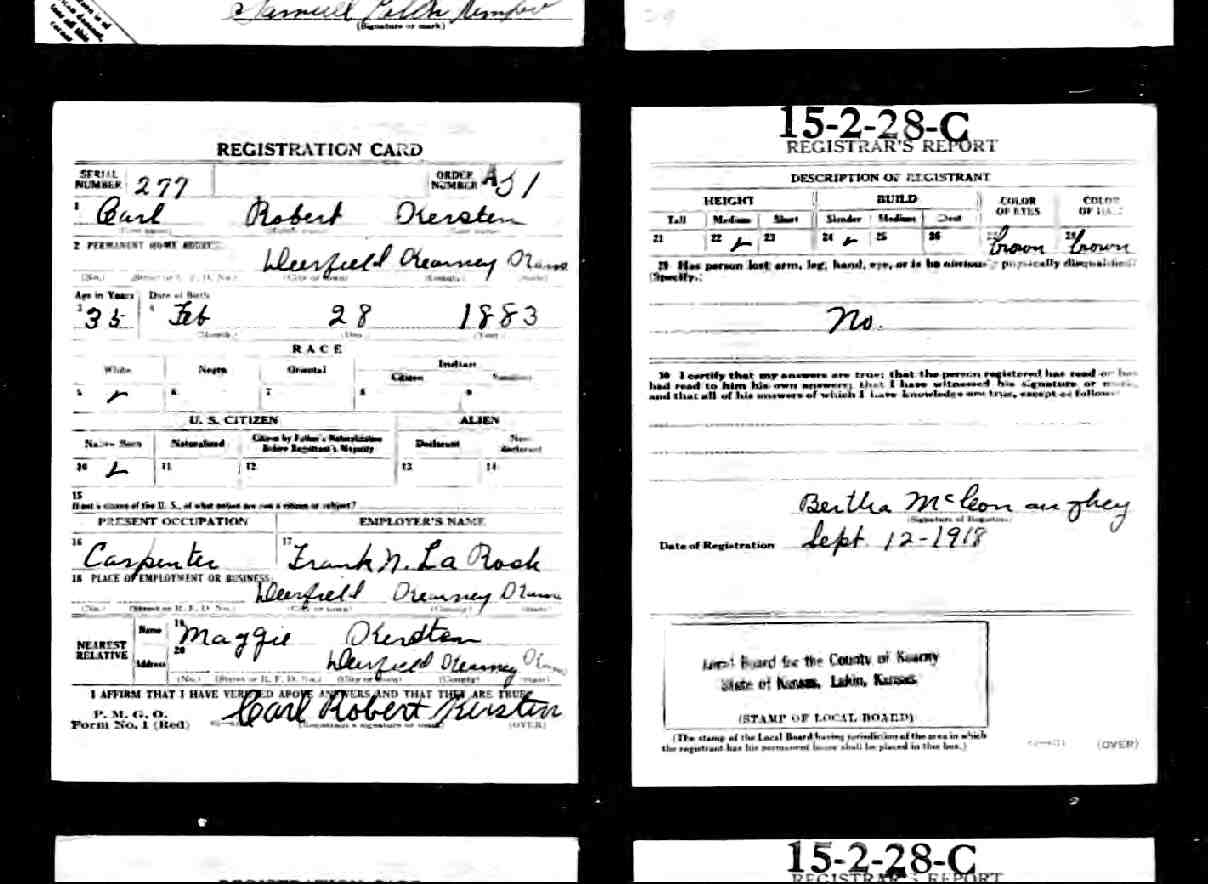 Samuel
(Signature or mark)
REGISTRATION CARD
SERIAL NUMBER 277
ORDER NUMBER A51
1 Carl Robert Kersten
2 PERMANENT HOME ADDRESS:
Deerfield Kearney Kans
(No.) (Street or R. F. D. No.) (City or town) (County) (State)
Age in Years Date of Birth
3 35 4 Feb 28 1883
(Month.) (Day.) (Year.)
RACE
White Negro Oriental Indian
Citizen Noncitizen
5 ✓ 6 7 8 9
U. S. CITIZEN ALIEN
Native Born Naturalized Citizen by Father's Naturalization Before Registrant's Majority Declarant Non-declarant
10 ✓ 11 12 13 14
15
If not a citizen of the U. S., of what nation are you a citizen or subject?
PRESENT OCCUPATION EMPLOYER'S NAME
16 Carpenter 17 Frank N. La Rock
18 PLACE OF EMPLOYMENT OR BUSINESS:
Deerfield Kearney Kans
(No.) (Street or R. F. D. No.) (City or town) (County) (State)
NEAREST RELATIVE
Name 19 Maggie Kersten
Address 20 Deerfield Kearney Kans
(No.) (Street or R. F. D. No.) (City or town) (County) (State)
I AFFIRM THAT I HAVE VERIFIED ABOVE ANSWERS AND THAT THEY ARE TRUE
P. M. G. O.
Form No. 1 (Red)
Carl Robert Kersten
(Registrant's signature or mark) (OVER)
15-2-28-C
REGISTRAR'S REPORT
DESCRIPTION OF REGISTRANT
HEIGHT BUILD COLOR OF EYES COLOR OF HAIR
Tall Medium Short Slender Medium Stout
21 22 ✓ 23 24 ✓ 25 26 27 brown 28 brown
29 Has person lost arm, leg, hand, eye, or is he obviously physically disqualified?
(Specify.)
No.
30 I certify that my answers are true; that the person registered has read or has
had read to him his own answers; that I have witnessed his signature or mark,
and that all of his answers of which I have knowledge are true, except as follows:
Bertha McConaughey
(Signature of Registrar)
Date of Registration Sept. 12-1918
Local Board for the County of Kearny
State of Kansas, Lakin, Kansas
(STAMP OF LOCAL BOARD)
(The stamp of the Local Board having jurisdiction of the area in which
the registrant has his permanent home shall be placed in this box.)
(OVER)
15-2-28-C
REGISTRAR'S REPORT